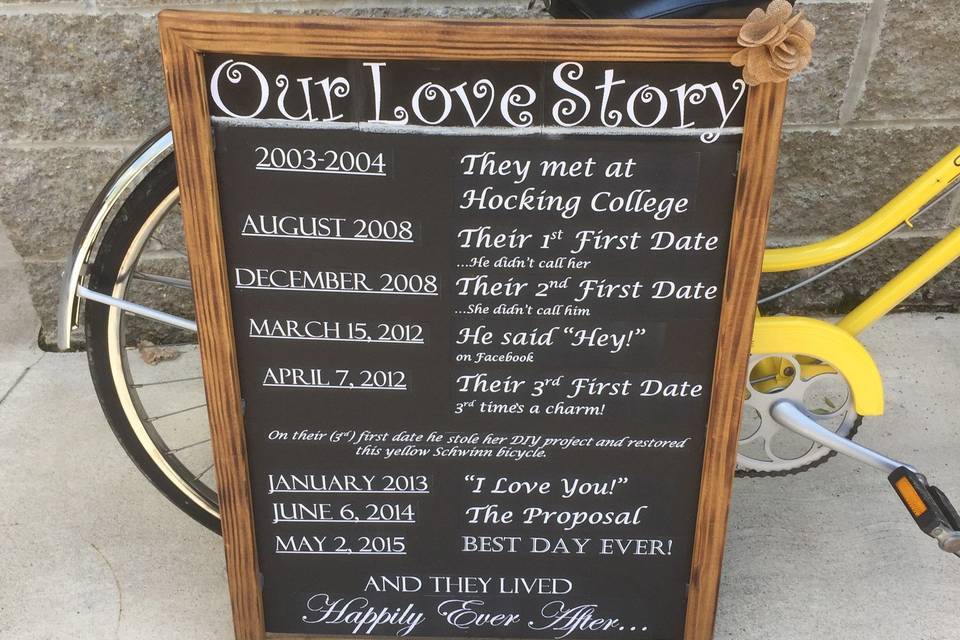 Our Love Story
2003-2004 They met at
Hocking College
AUGUST 2008 Their 1st First Date
...He didn't call her
DECEMBER 2008 Their 2nd First Date
...She didn't call him
MARCH 15, 2012 He said “Hey!”
on Facebook
APRIL 7, 2012 Their 3rd First Date
3rd time's a charm!
On their (3rd) first date he stole her DIY project and restored
this yellow Schwinn bicycle.
JANUARY 2013 “I Love You!”
JUNE 6, 2014 The Proposal
MAY 2, 2015 BEST DAY EVER!
AND THEY LIVED
Happily Ever After...